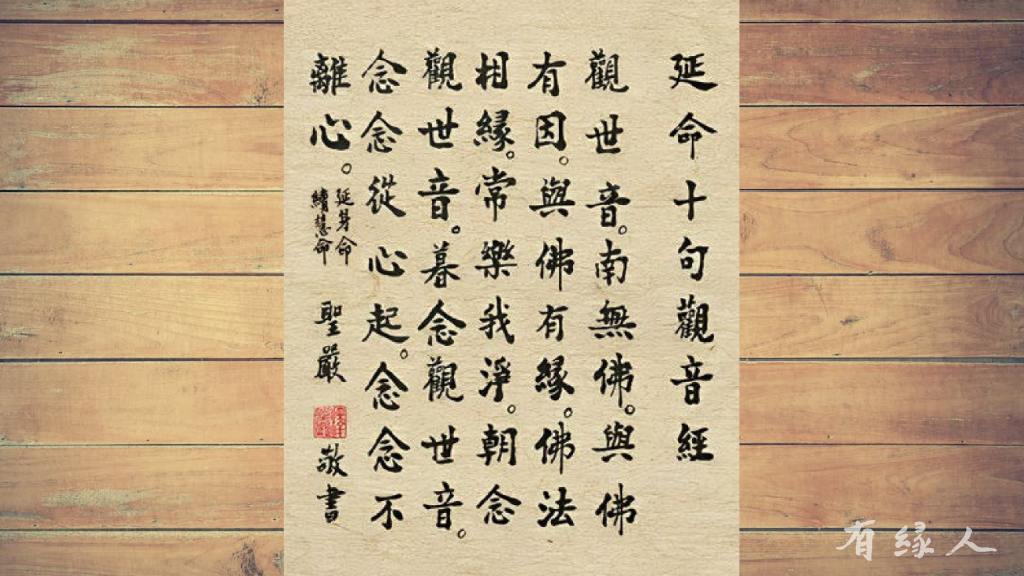 延命十句觀音經
觀世音。南無佛。與佛
有因。與佛有緣。佛法
相緣。常樂我淨。朝念
觀世音。暮念觀世音。
念念從心起。念念不
離心。
延身命
續慧命
聖嚴
敬書
有緣人